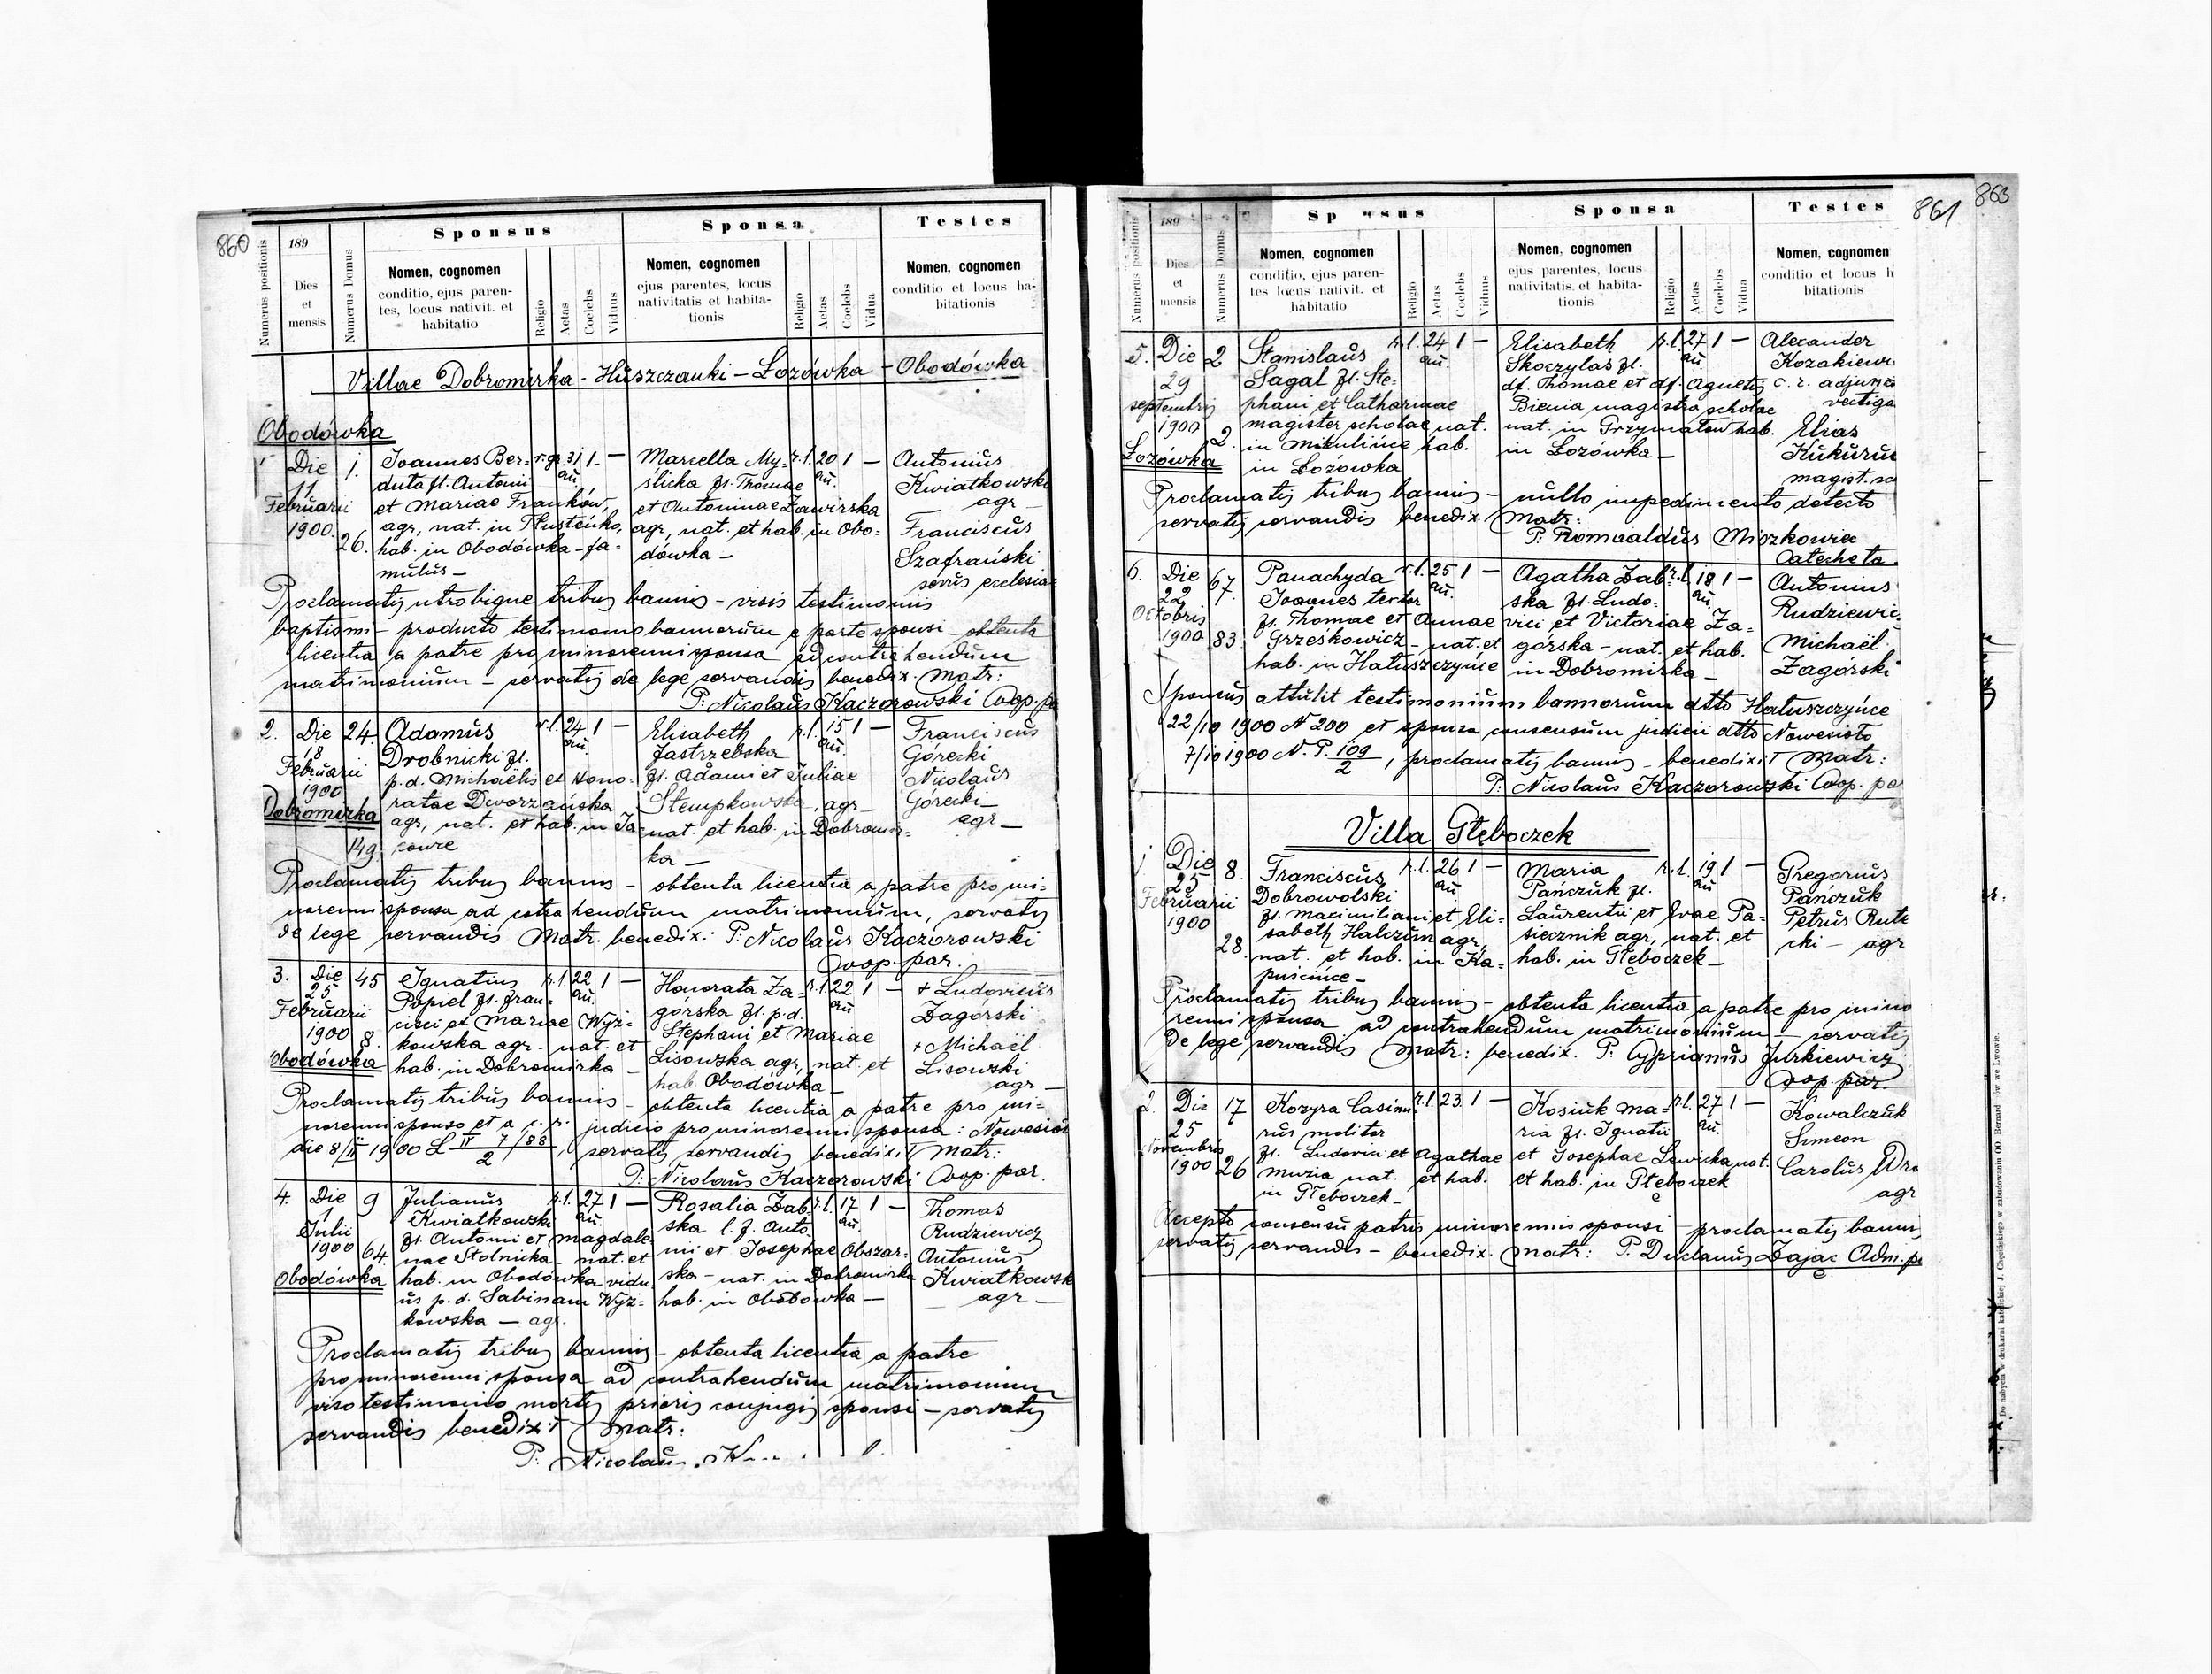 860
189
Sponsus
Sponsa
Testes
Numerus positionis
Dies et mensis
Numerus Domus
Nomen, cognomen
conditio, ejus paren-
tes, locus nativit. et
habitatio
Religio
Aetas
Coelebs
Viduus
Nomen, cognomen
ejus parentes, locus
nativitatis et habita-
tionis
Religio
Aetas
Coelebs
Vidua
Nomen, cognomen
conditio et locus ha-
bitationis
Villae Dobromirka - Huszczanki - Łozówka - Obodówka
Obodówka
1 Die 11 Februarii 1900. 1. 26.
Joannes Ber-
duta fl. Antoni
et Mariae Franków,
agr, nat. in Tłusteńko,
hab. in Obodówka - fa-
mulus -
r. gr. 31 an. 1 -
Marcella My-
ślicka fl. Thomae
et Antoninae Zawirska
agr, nat. et hab. in Obo-
dówka -
r. l. 20 an. 1 -
Antonius
Kwiatkowski
agr
Franciscus
Szafrański
servus ecclesiae
Proclamatis utrobique tribus bannis - visis testimoniis
baptismi - producto testimonio bannorum e parte sponsi - obtenta
licentia a patre pro minorenni sponsa ad contrahendum
matrimonium - servatis de lege servandis benedix. Matr:
P: Nicolaus Kaczorowski Coop. p
2. Die 18 Februarii 1900 24. 149.
Dobromirka
Adamus
Drobnicki fl.
p. d. Michaelis et Hono-
ratae Dworzańska
agr, nat. et hab. in Ja-
cowce
r. l. 24 an. 1 -
Elisabeth
Jastrzebska
fl. Adami et Juliae
Stempkowska, agr
nat. et hab. in Dobromir-
ka -
r. l. 15 an. 1 -
Franciscus
Górecki
Nicolaus
Górecki -
agr -
Proclamatis tribus bannis - obtenta licentia a patre pro mi-
norenni sponsa ad cotrahendum matrimonium, servatis
de lege servandis Matr. benedix: P: Nicolaus Kaczorowski
Coop. par.
3. Die 25 Februarii 1900 45 8.
Obodówka
Ignatius
Popiel fl. Fran-
cisci et Mariae Wyż-
kowska agr - nat. et
hab. in Dobromirka -
r. l. 22 an. 1 -
Honorata Za-
górska fl. p. d.
Stephani et Mariae
Lisowska agr, nat. et
hab. Obodówka -
r. l. 22 an 1 -
+ Ludovicus
Zagórski
+ Michaël
Lisowski
agr -
Proclamatis tribus bannis - obtenta licentia a patre pro mi-
norenni sponso et a c. r. judicio pro minorenni sponsa: Nowesioł
die 8/II 1900 L IV 7/88 2, servatis servandis benedixit Matr:
P: Nicolaus Kaczorowski Coop. par.
4. Die 1 Julii 1900 9 64
Obodówka
Julianus
Kwiatkowski
fl. Antoni et Magdale-
nae Stolnicka - nat. et
hab. in Obodówka vidu-
us p. d. Sabinam Wyż-
kowska - agr.
r. l. 27 an. 1 -
Rosalia Zab-
ska l. f. Anto-
ni et Josephae Obszar-
ska - nat. in Dobromirka
hab. in Obodówka -
r. l. 17 an. 1 -
Thomas
Rudziewicz
Antonius
Kwiatkowsk
agr -
Proclamatis tribus bannis - obtenta licentia a patre
pro minorenni sponsa ad contrahendum matrimonium
viso testimonio mortis prioris conjugis sponsi - servatis
servandis benedixit Matr:
P: Nicolaus K
861
863
189
Sponsus
Sponsa
Testes
Numerus positionis
Dies et mensis
Numerus Domus
Nomen, cognomen
conditio, ejus paren-
tes locus nativit. et
habitatio
Religio
Aetas
Coelebs
Viduus
Nomen, cognomen
ejus parentes, locus
nativitatis. et habita-
tionis
Religio
Aetas
Coelebs
Vidua
Nomen, cognomen
conditio et locus h
bitationis
5. Die 29 septembris 1900 2 2.
Łozówka
Stanislaus
Sagal fl. Ste-
phani et Catharinae
magister scholae nat.
in Mikulińce hab.
in Łozówka
r. l. 24 an. 1 -
Elisabeth
Skoczylas fl.
df. Thomae et df. Agnetis
Bienia magistra scholae
nat. in Grzymałow hab.
in Łozówka -
r. l. 27 an. 1 -
Alexander
Kozakiewi
c. r. adjunc
vectiga
Elias
Kukurud
magist. sc
Proclamatis tribus bannis - nullo impedimento detecto
servatis servandis benedix. Matr:
P: Romualdus Miszkowicz
Catecheta.
6. Die 22 Octobris 1900 67. 83
Panachyda
Joannes textor
fl. Thomae et Annae
Grześkowicz - nat. et
hab. in Hałuszczyńce
r. l. 25 an. 1 -
Agatha Zab-
ska fl. Ludo-
vici et Victoriae Za-
górska - nat. et hab.
in Dobromirka -
r. l. 18 an. 1 -
Antonius
Rudziewic
Michaël
Zagórski
Sponsus attulit testimonium bannorum dtto Hałuszczyńce
22/10 1900 N 200 et sponsa consensum judicii dtto Nowesioło
7/10 1900 N. P. 109/2, proclamatis bannis - benedixit Matr:
P: Nicolaus Kaczorowski Coop. pa
Villa Głęboczek
1 Die 25 Februarii 1900 8. 28
Franciscus
Dobrowolski
fl. Maximiliani et Eli-
sabeth Halczun agr,
nat. et hab. in Ka-
puścińce -
r. l. 26 an 1 -
Maria
Pańczuk fl.
Laurentii et Evae Pa-
siecznik agr, nat. et
hab. in Głęboczek -
r. l. 19 an 1 -
Gregorius
Pańczuk
Petrus Rute
cki - agr
Proclamatis tribus bannis - obtenta licentia a patre pro mino
renni sponsa ad contrahendum matrimonium - servatis
de lege servandis Matr: benedix. P: Cyprianus Jurkiewicz
Coop. par
2. Die 25 Novembris 1900 17 26
Kozyra Casimi-
rus molitor
fl. Ludovici et Agathae
Muzia nat. et hab.
in Głęboczek -
r. l. 23 1 -
Kosiuk Ma-
ria fl. Ignatii
et Josephae Lewicka nat.
et hab. in Głęboczek
r. l. 27 an. 1 -
Kowalczuk
Simeon
Carolus Wro
agr
Accepto consensu patris minorennis sponsi - proclamatis bannis
servatis servandis - benedix. Matr: P. Duclanus Zając Adm. p
Do nabycia w drukarni katolickiej J. Chęcińskiego w zabudowaniu OO. Bernardynów we Lwowie.